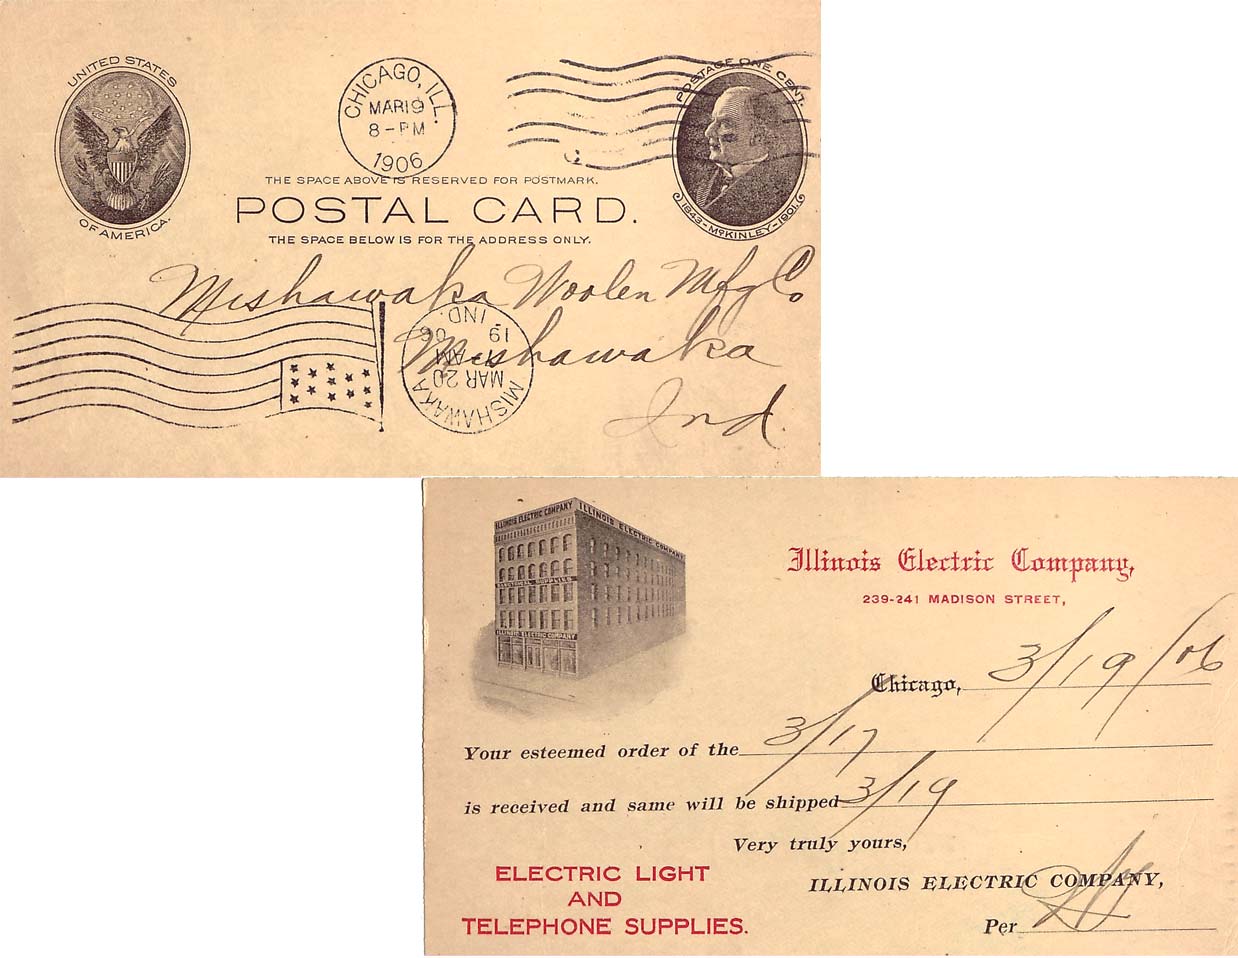 UNITED STATES
OF AMERICA.
CHICAGO, ILL.
MAR 19
8-PM
1906
POSTAGE ONE CENT.
1843-McKINLEY-1901.
THE SPACE ABOVE IS RESERVED FOR POSTMARK.
POSTAL CARD.
THE SPACE BELOW IS FOR THE ADDRESS ONLY.
Mishawaka Woolen Mfg Co
Mishawaka
Ind.
MISHAWAKA
MAR 20
AM
19 06
IND.
ILLINOIS ELECTRIC COMPANY
ILLINOIS ELECTRIC COMPANY
ELECTRICAL SUPPLIES
ILLINOIS ELECTRIC COMPANY
Illinois Electric Company,
239-241 MADISON STREET,
Chicago, 3/19/06
Your esteemed order of the 3/17
is received and same will be shipped 3/19
Very truly yours,
ILLINOIS ELECTRIC COMPANY,
Per
ELECTRIC LIGHT
AND
TELEPHONE SUPPLIES.